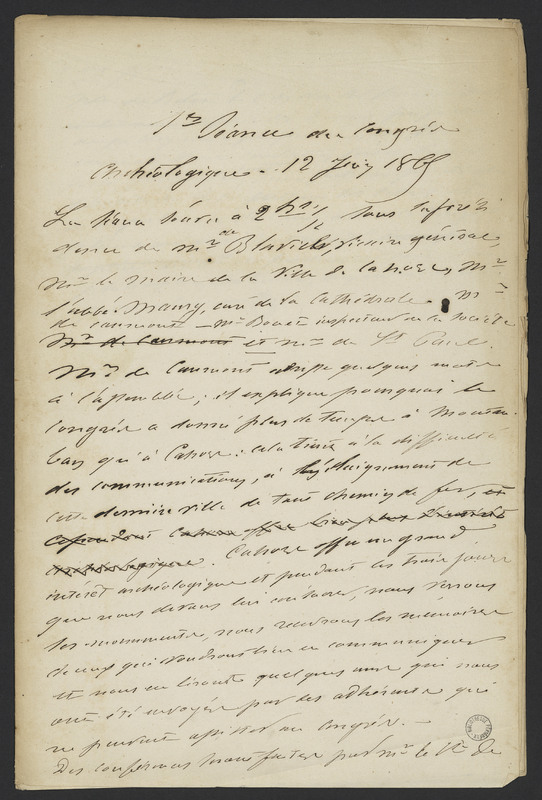 1re Séance du Congrès
archéologique. 12 Juin 1865
La séance s'ouvre à 2 hrs, sous la prési
dence de Mr de Blaviel, vicaire général,
Mr le maire de la ville de Cahors, Mr
l'abbé Maury, curé de la Cathédrale, Mr
de Caumont, Mr Bouet inspecteur de la société
Mr de Caumont et Mr de St Paul.
Mr de Caumont adresse quelques mots
à l'assemblée; il explique pourquoi le
Congrès a donné plus de temps à Montau
ban qu'à Cahors: cela tient à la difficulté
des communications, à l'éloignement de
cette dernière ville de tous chemins de fer, et
cependant Cahors offre
archéologique. Cahors offre un grand
intérêt archéologique et pendant les trois jours
que nous devons lui consacrer, nous verrons
les monuments, nous recevrons les mémoires
de ceux qui voudront bien en communiquer
et nous en lirons quelques uns qui nous
ont été envoyés par des adhérents qui
ne peuvent assister au Congrès. —
Des conférences seront faites par Mr le Vte de